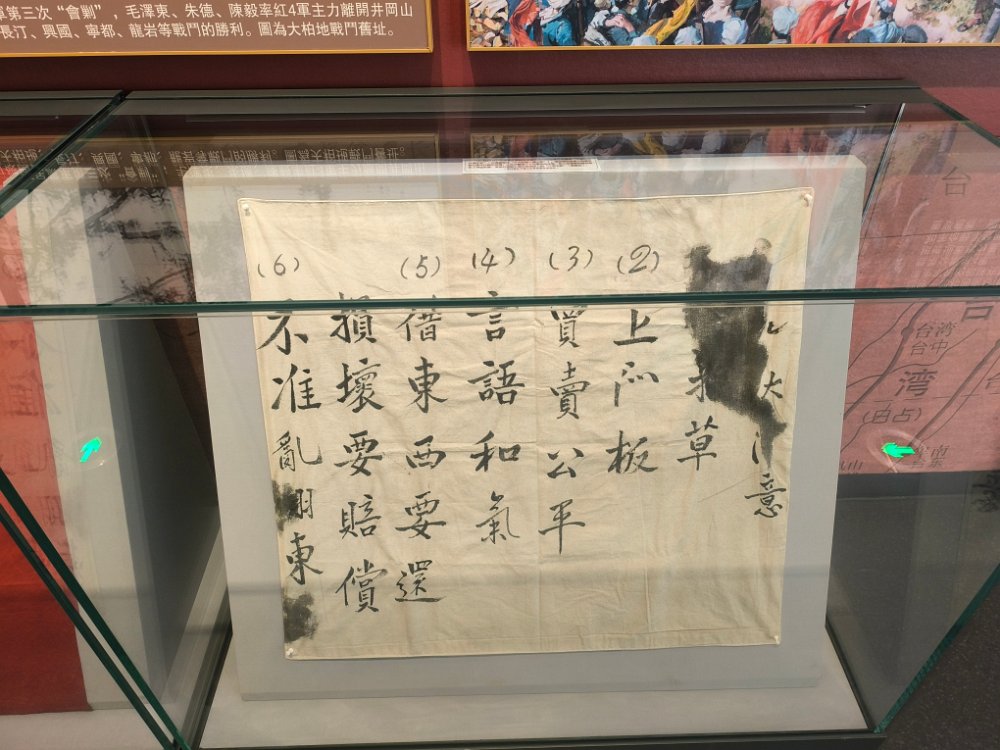 第三次“會剿”，毛澤東、朱德、陳毅率紅4軍主力離開井岡山
長汀、興國、寧都、龍岩等戰鬥的勝利。圖為大柏地戰鬥舊址。
大 意
草
(2) 上门板
(3) 買賣公平
(4) 言語和氣
(5) 借東西要還
損壞要賠償
(6) 不准亂用東
台
台湾
台中
湾
(白占)